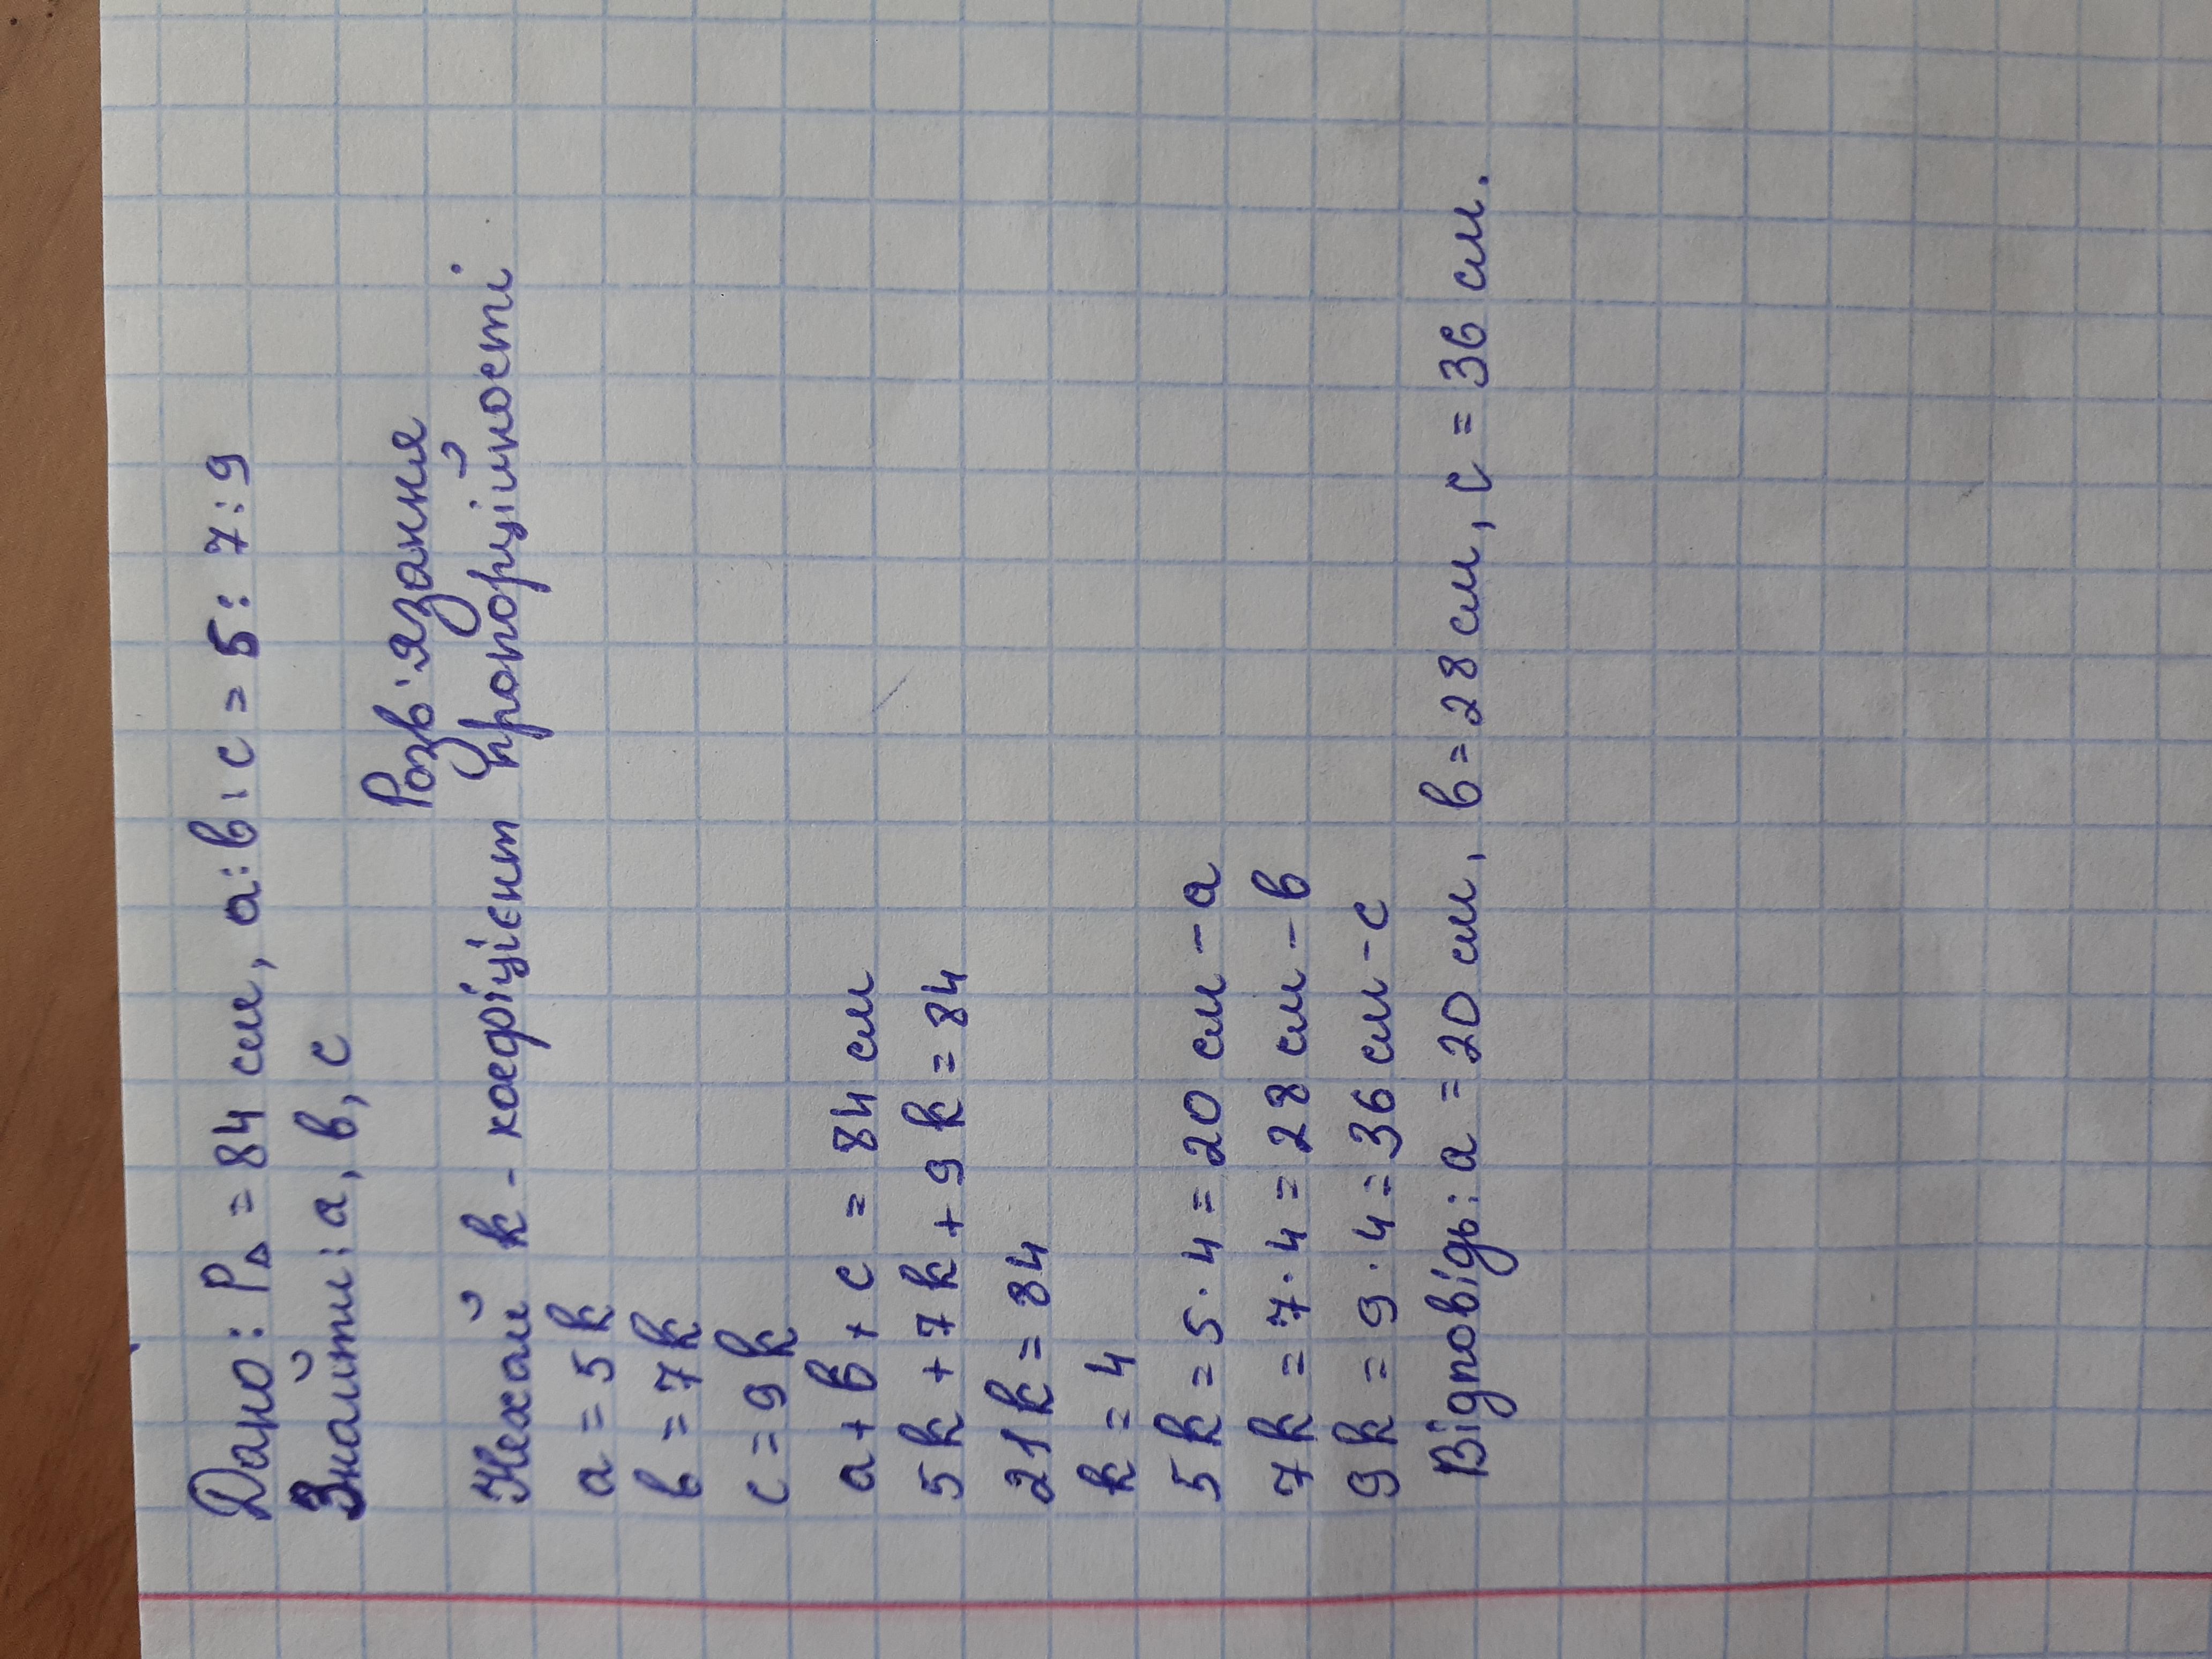 Дано: P△ = 84 см, a:в:c = 5:7:9
Знайти: a, в, c
Розв'язання
Нехай k - коефіцієнт пропорційності
a = 5k
в = 7k
c = 9k
a + в + c = 84 см
5k + 7k + 9k = 84
21k = 84
k = 4
5k = 5 · 4 = 20 см - a
7k = 7 · 4 = 28 см - в
9k = 9 · 4 = 36 см - c
Відповідь: a = 20 см, в = 28 см, c = 36 см.